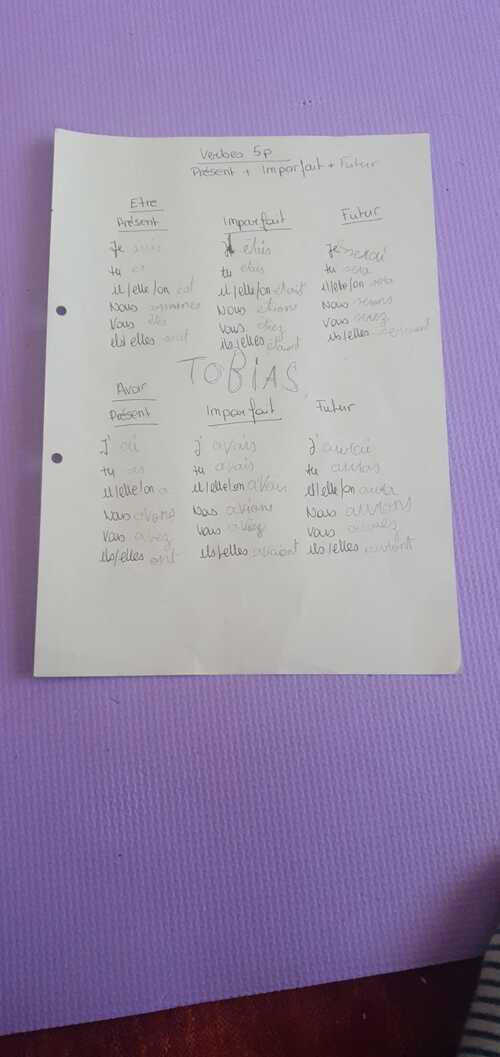 Verbes 5p
Présent + Imparfait + Futur
Etre
Présent Imparfait Futur
Je suis étais Je serai
tu es tu étais tu sera
il/elle/on est il/elle/on était il/elle/on sera
Nous sommes Nous étions Nous serons
Vous êtes Vous étiez Vous serez
ils/elles sont ils/elles étaient ils/elles
TOBIAS
Avoir
Présent Imparfait Futur
J' ai j' avais J' aurai
tu as tu avais tu auras
il/elle/on a il/elle/on avait il/elle/on aura
Nous avons Nous avions Nous aurons
Vous avez Vous avez Vous
ils/elles ont ils/elles avaient ils/elles auront